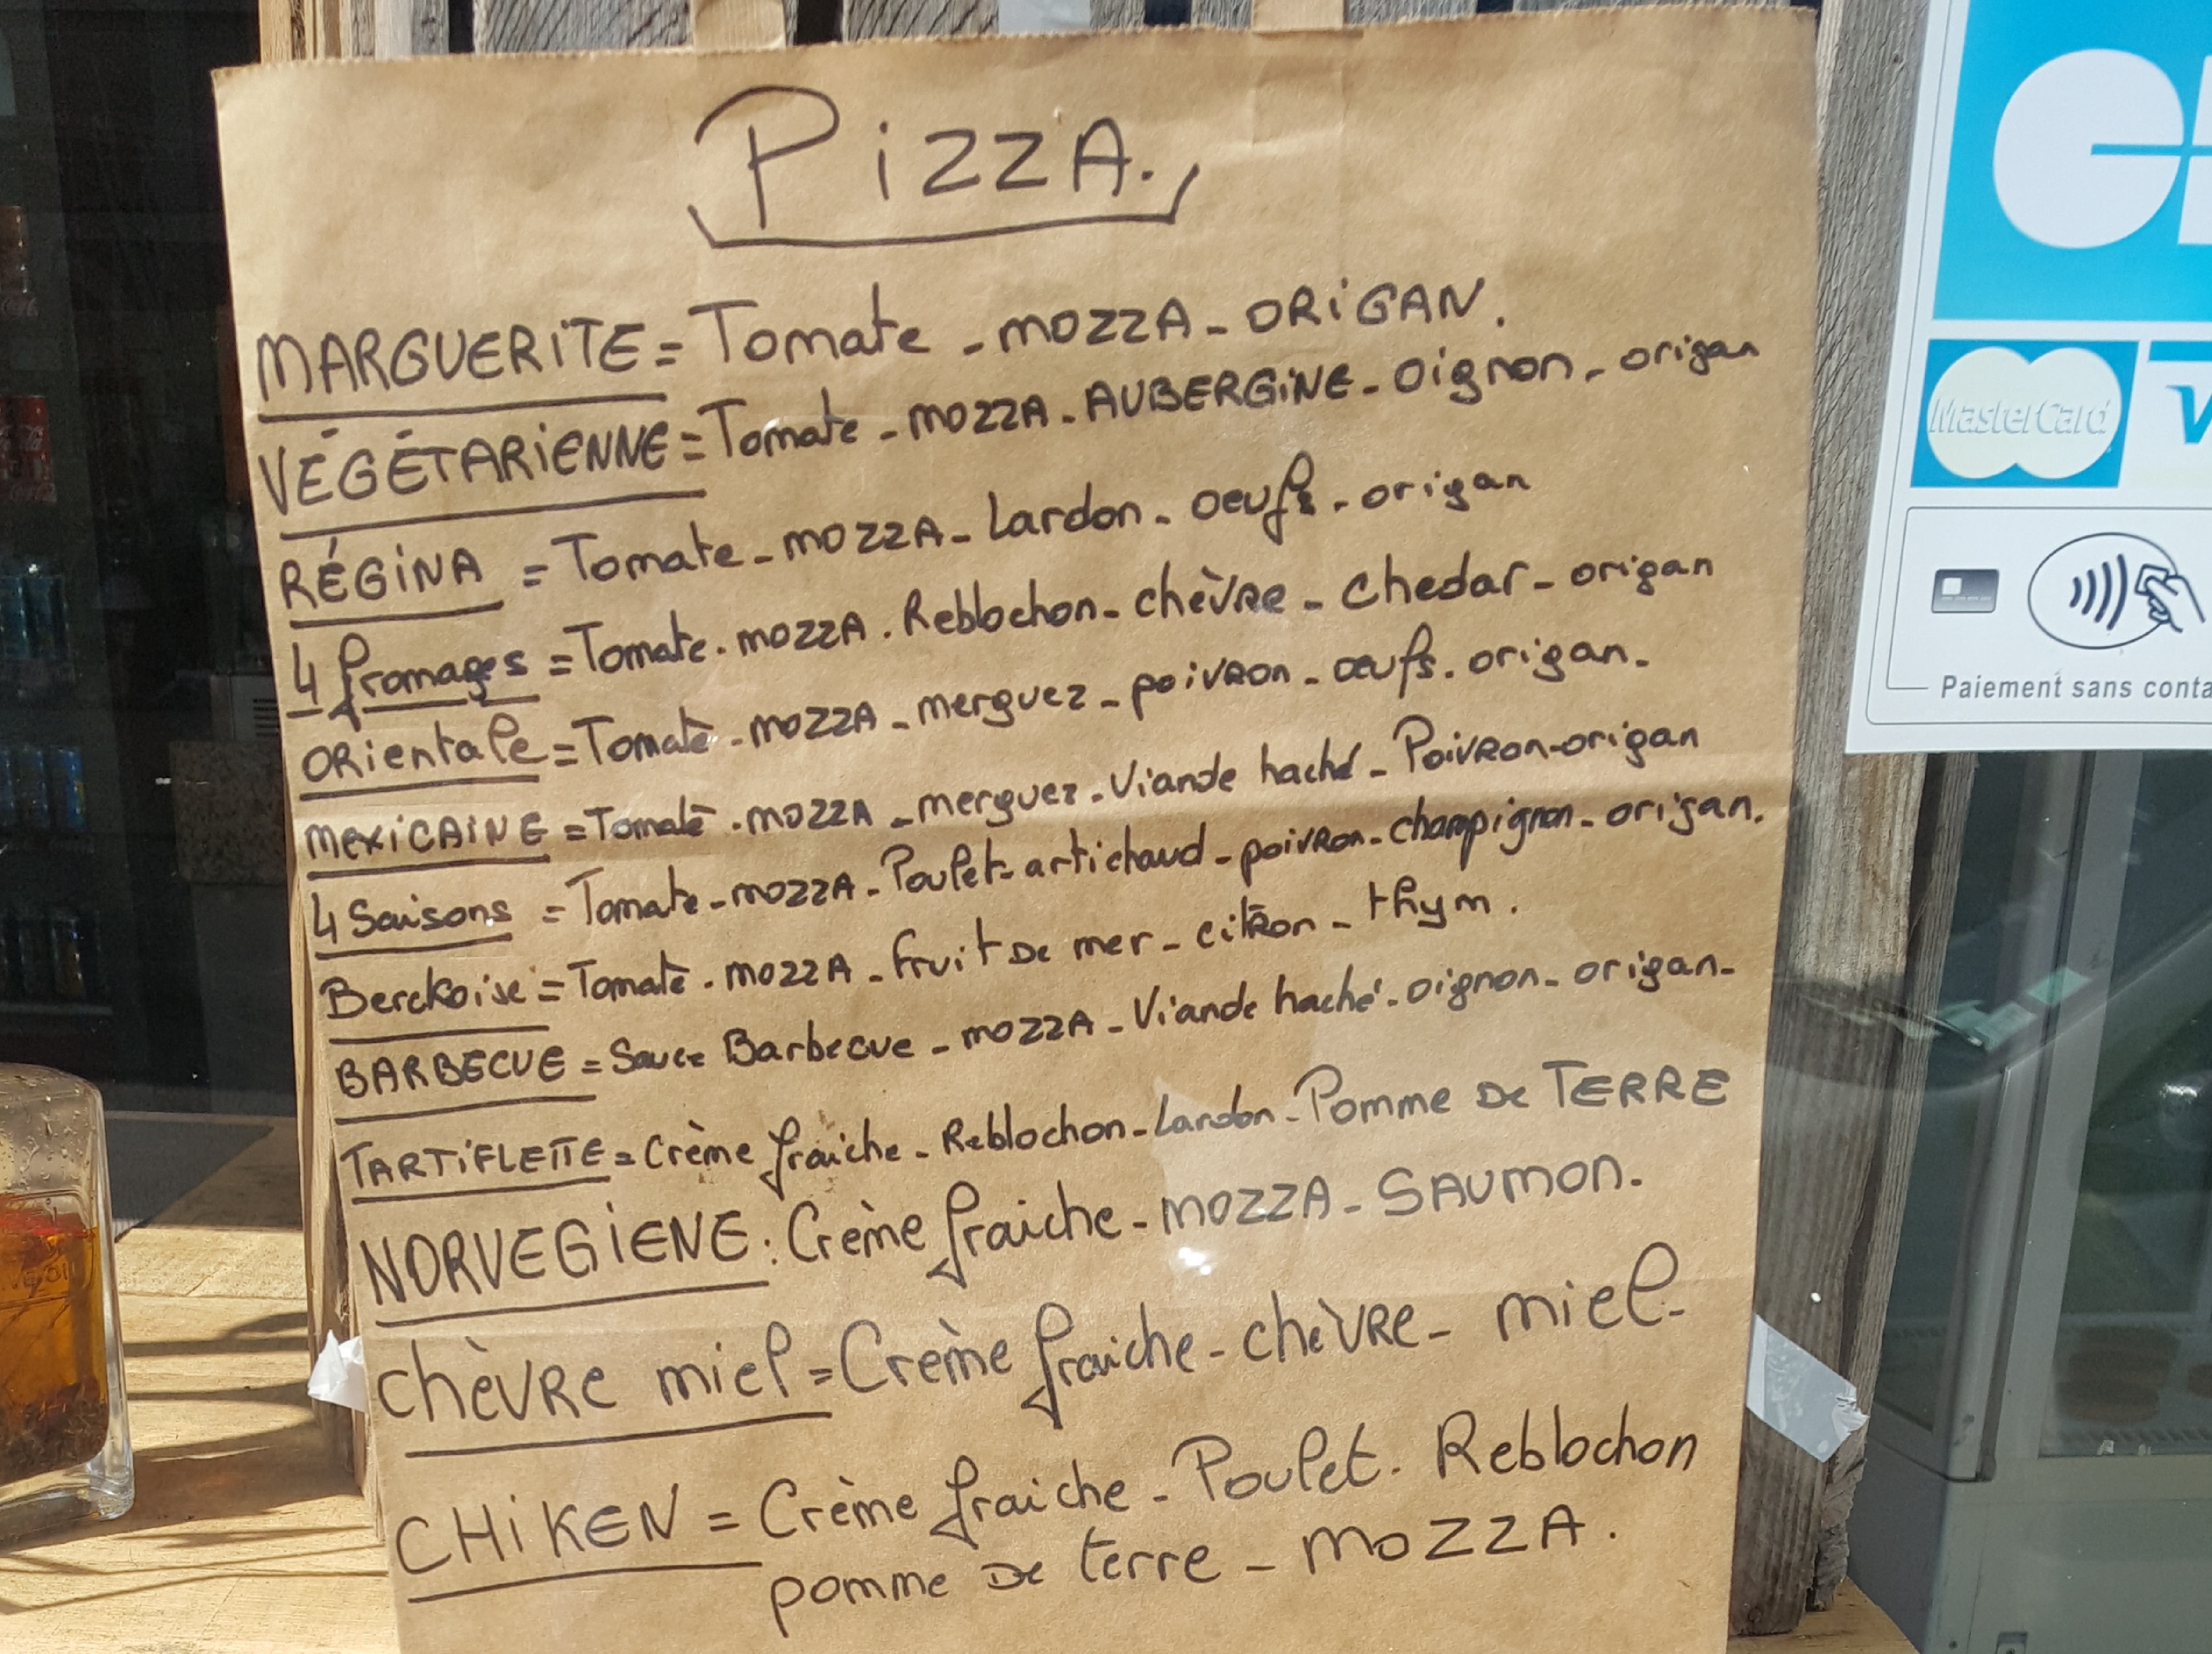 PiZZA.
MARGUERiTE = Tomate - mozzA - ORiGAN.
VÉGÉTARiENNE = Tomate - mozzA - AUBERGiNE - Oignon - origan
RÉGiNA = Tomate - mozzA - Lardon - oeufs - origan
4 fromages = Tomate . mozzA . Reblochon - chèvre - chedar - origan
ORientale = Tomate - mozzA - merguez - poivron - œufs . origan.
mexiCAiNE = Tomate . mozzA - merguez - Viande haché - Poivron - origan
4 Saisons = Tomate - mozzA - Poulet - artichaud - poivron - champignon - origan.
Berckoise = Tomate . mozzA - fruit De mer - citron - thym.
BARBECUE = Sauce Barbecue - mozzA - Viande haché - oignon - origan -
TARTiFLETTE = Crème fraiche - Reblochon - Lardon - Pomme De TERRE
NORVEGiENE : Crème fraiche - mozzA - SAUMON.
chèvre miel = Crème fraiche - chèvre - miel -
CHiKEN = Crème fraiche - Poulet . Reblochon
pomme De terre - mozzA.
MasterCard
Paiement sans conta